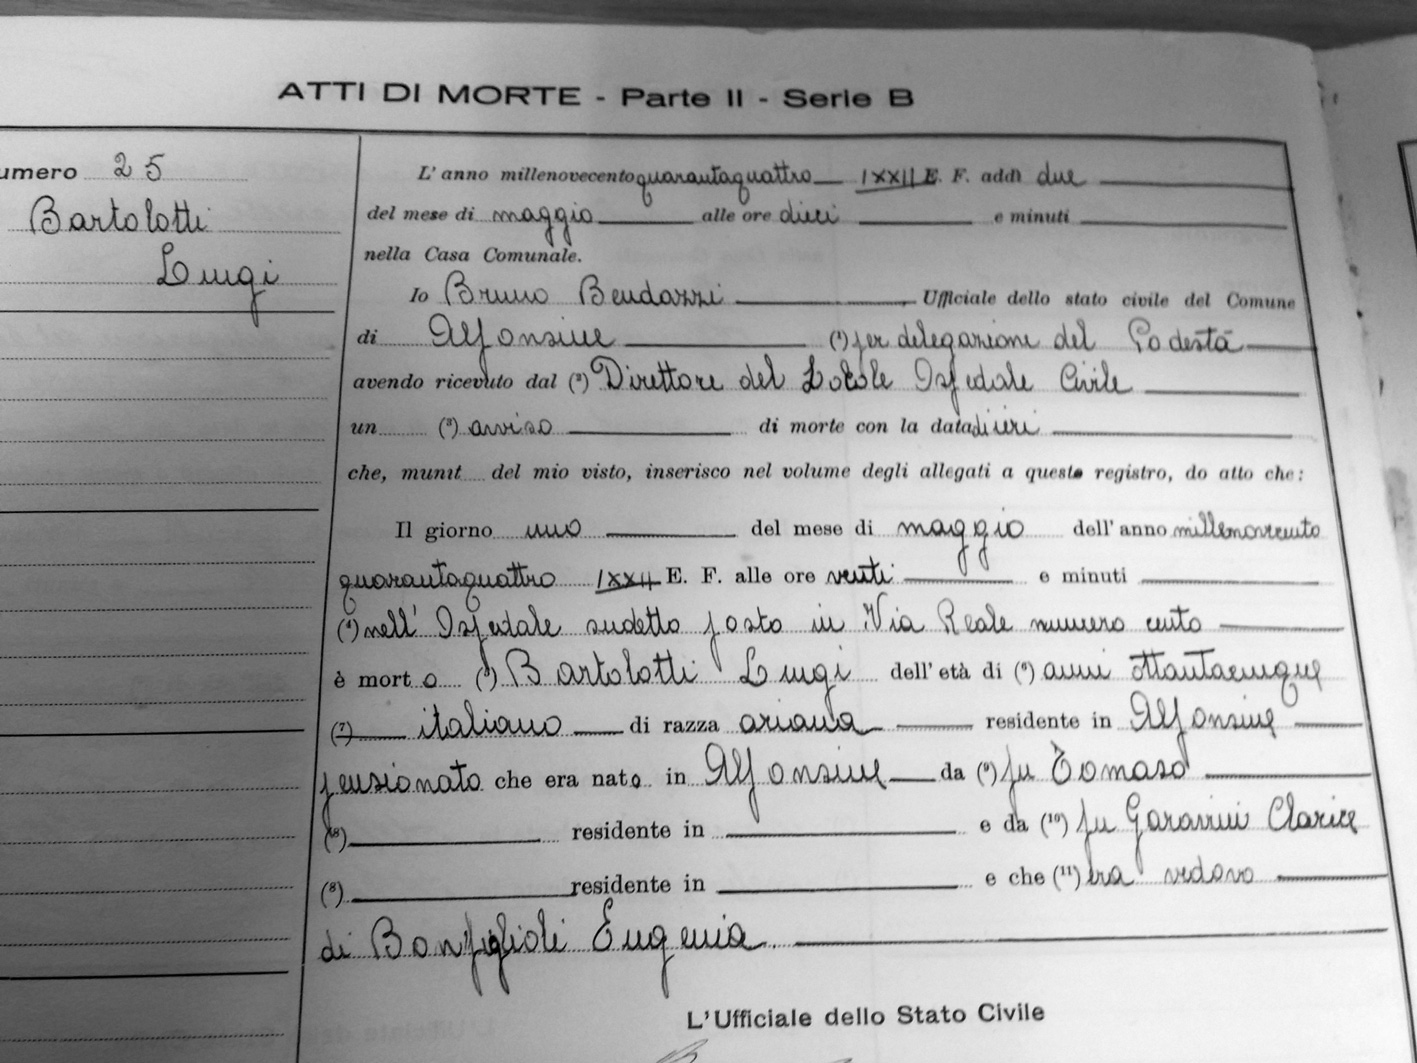 ATTI DI MORTE - Parte II - Serie B
umero 25
Bartolotti
Luigi
L'anno millenovecento quarantaquattro IXXII E. F. addì due
del mese di maggio alle ore dieci e minuti
nella Casa Comunale.
Io Bruno Bendazzi, Ufficiale dello stato civile del Comune
di Alfonsine (¹) per delegazione del Podestà
avendo ricevuto dal (²) Direttore del Locale Ospedale Civile
un (³) avviso di morte con la data di ieri
che, munit del mio visto, inserisco nel volume degli allegati a questo registro, do atto che:
Il giorno uno del mese di maggio dell'anno millenovecento
quarantaquattro IXXII E. F. alle ore venti e minuti
(⁴) nell'Ospedale sudetto posto in Via Reale numero cento
è morto (⁵) Bartolotti Luigi dell'età di (⁶) anni ottantacinque
(⁷) italiano di razza ariana residente in Alfonsine
pensionato che era nato in Alfonsine da (⁹) fu Tomaso
(⁸) residente in e da (¹⁰) fu Garavini Clarice
(⁸) residente in e che (¹¹) era vedovo
di Bonfiglioli Eugenia
L'Ufficiale dello Stato Civile